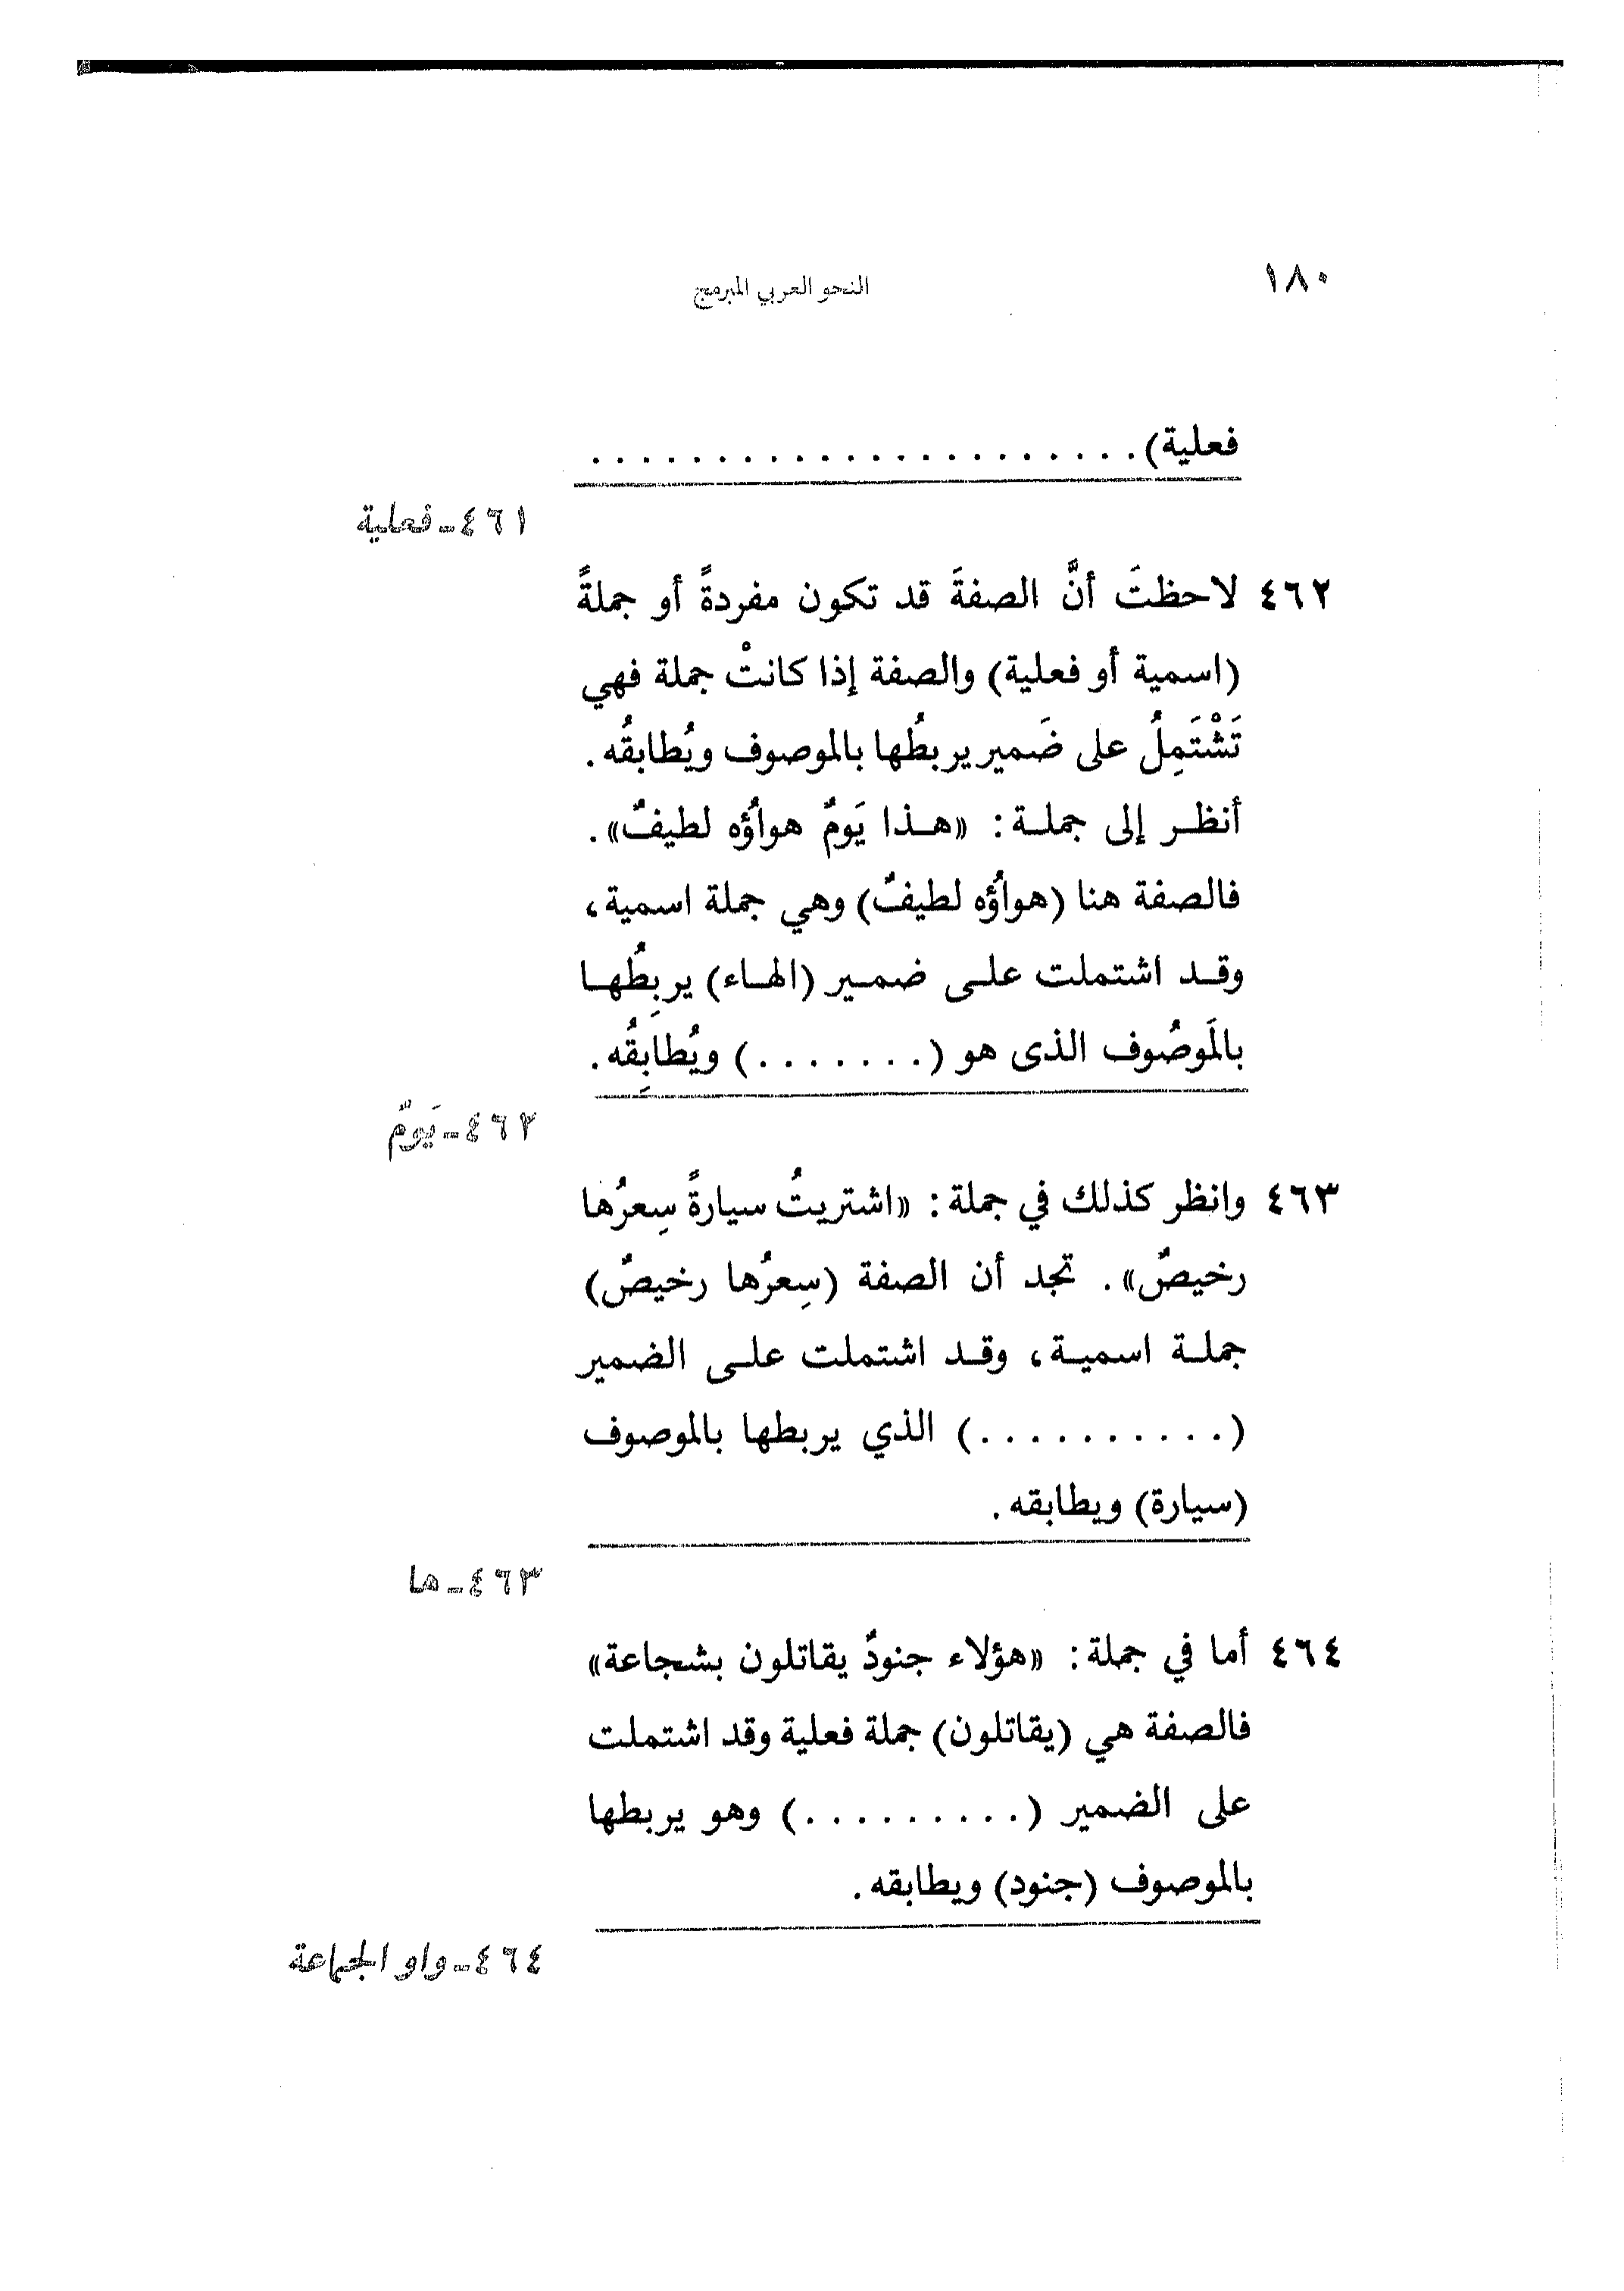 ١٨٠
النحو العربي المبرمج
فعلية) . . . . . . . . . . . . . . . . . . . . . .
٤٦١ـ فعلية
٤٦٢ لاحظتَ أنَّ الصفةَ قد تكون مفردةً أو جملةً
(اسمية أو فعلية) والصفة إذا كانتْ جملة فهي
تَشْتَمِلُ على ضَمير يربطُها بالموصوف ويُطابقُه .
أنظـر إلى جملـة : «هـذا يَومٌ هواؤُه لطيفٌ» .
فالصفة هنا (هواؤُه لطيفٌ) وهي جملة اسمية ،
وقـد اشتملت علـى ضمـير (الهـاء) يربِطُهـا
بالَموصُوف الذى هو ( . . . . . . . ) ويُطابِقُه .
٤٦٢ـ يَومٌ
٤٦٣ وانظر كذلك في جملة : «اشتريتُ سيارةً سِعرُها
رخيصٌ» . تجد أن الصفة (سِعرُها رخيصٌ)
جملـة اسميـة ، وقـد اشتملت علـى الضمير
( . . . . . . . . . . ) الذي يربطها بالموصوف
(سيارة) ويطابقه .
٤٦٣ـ ها
٤٦٤ أما في جملة : «هؤلاء جنودٌ يقاتلون بشجاعة»
فالصفة هي (يقاتلون) جملة فعلية وقد اشتملت
على الضمير ( . . . . . . . . . ) وهو يربطها
بالموصوف (جنود) ويطابقه .
٤٦٤ـ واو الجماعة